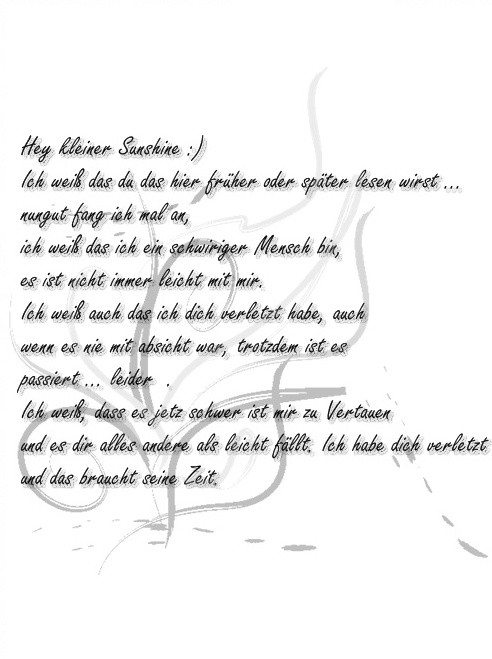 Hey kleiner Sunshine :)
Ich weiß das du das hier früher oder später lesen wirst ...
nungut fang ich mal an,
ich weiß das ich ein schwiriger Mensch bin,
es ist nicht immer leicht mit mir.
Ich weiß auch das ich dich verletzt habe, auch
wenn es nie mit absicht war, trotzdem ist es
passiert ... leider .
Ich weiß, dass es jetz schwer ist mir zu Vertauen
und es dir alles andere als leicht fällt. Ich habe dich verletzt
und das braucht seine Zeit.